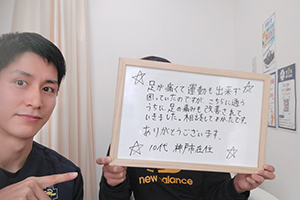 足が痛くて運動も出来ず
困っていたのですが、こちらに通う
うちに、足の痛みも改善されて
いきました。相談してよかったです。
ありがとうございます。
10代 神戸市在住
new balance